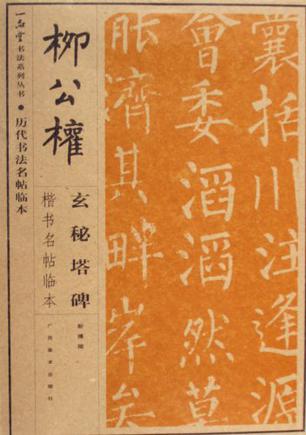 囊括川注逢源
會委滔滔然莫
能濟其畔岸矣
柳公權
玄秘塔碑
楷书名帖临本
广西美术出版社
书法系列丛书●历代书法名帖临本